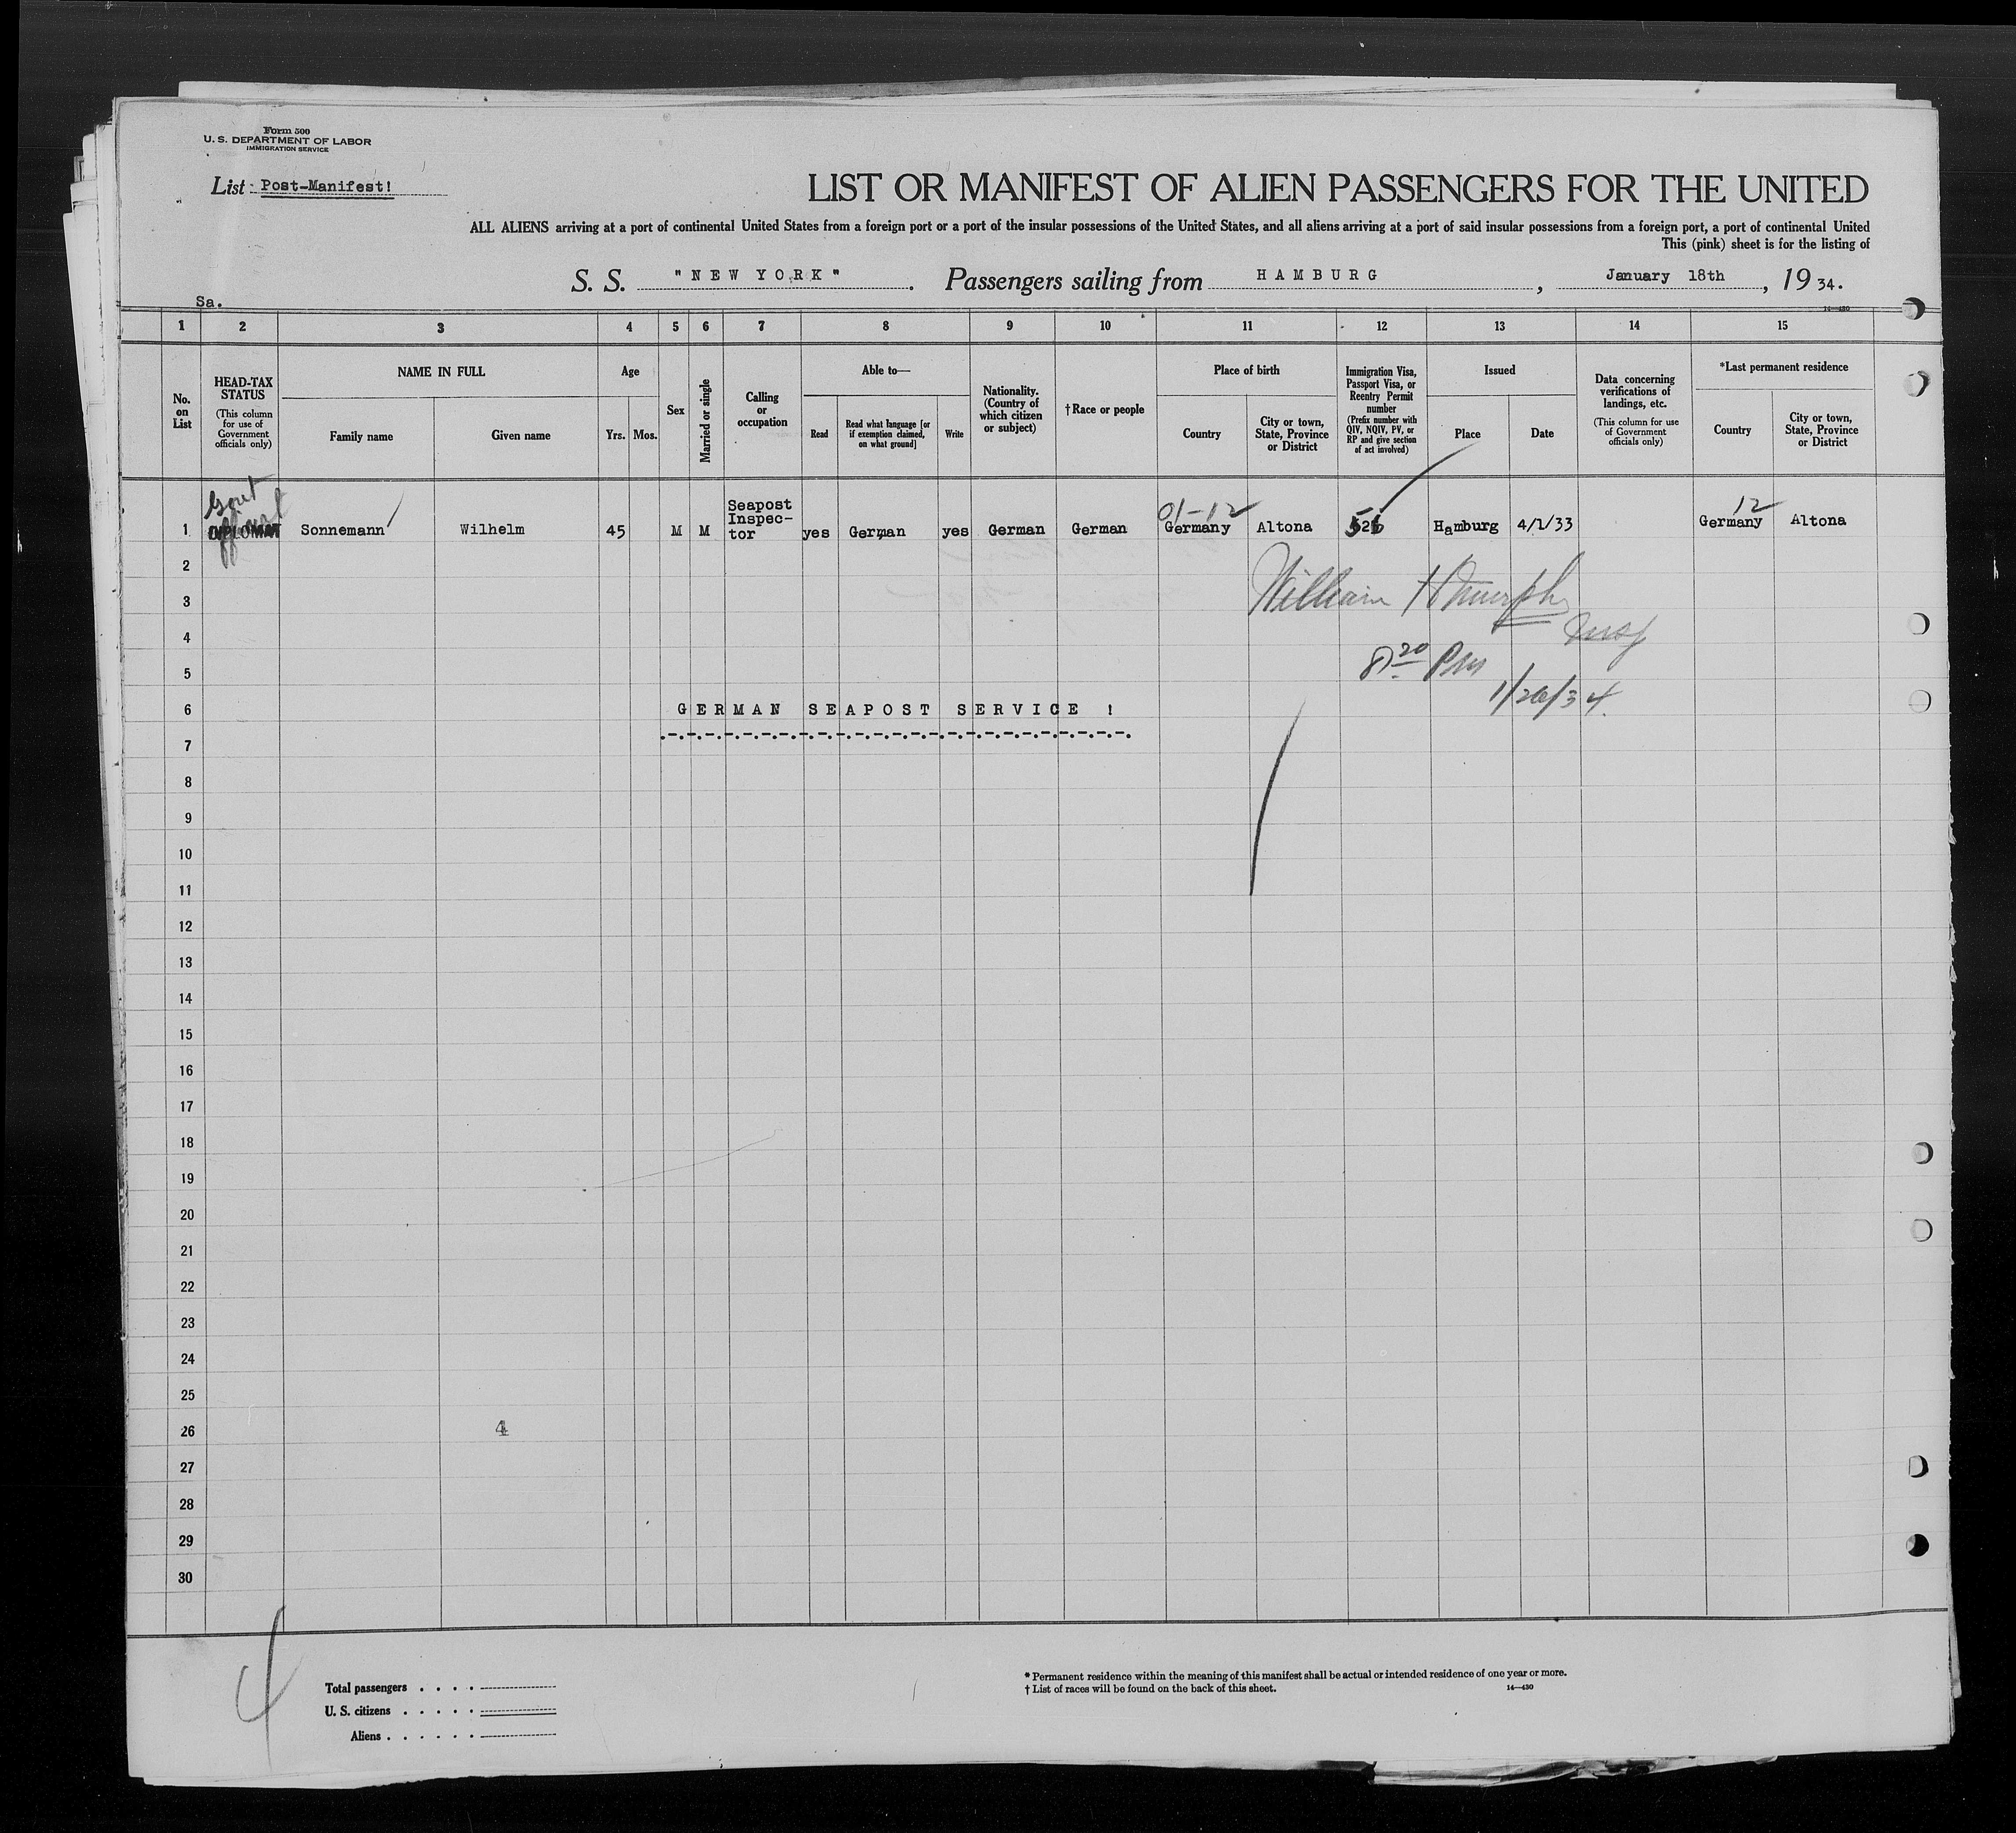 Form 500
U. S. DEPARTMENT OF LABOR
IMMIGRATION SERVICE
List Post-Manifest!
LIST OR MANIFEST OF ALIEN PASSENGERS FOR THE UNITED
ALL ALIENS arriving at a port of continental United States from a foreign port or a port of the insular possessions of the United States, and all aliens arriving at a port of said insular possessions from a foreign port, a port of continental United
This (pink) sheet is for the listing of
S. S. "NEW YORK". Passengers sailing from HAMBURG, January 18th, 1934.
Sa.
14—430
1 2 3 4 5 6 7 8 9 10 11 12 13 14 15
No. on List
HEAD-TAX STATUS (This column for use of Government officials only)
NAME IN FULL
Family name
Given name
Age
Yrs. Mos.
Sex
Married or single
Calling or occupation
Able to—
Read
Read what language [or if exemption claimed, on what ground]
Write
Nationality. (Country of which citizen or subject)
†Race or people
Place of birth
Country
City or town, State, Province or District
Immigration Visa, Passport Visa, or Reentry Permit number (Prefix number with QIV, NQIV, PV, or RP and give section of act involved)
Issued
Place
Date
Data concerning verifications of landings, etc. (This column for use of Government officials only)
*Last permanent residence
Country
City or town, State, Province or District
Govt
official
01-12
12
1 DIPLOMAT Sonnemann Wilhelm 45 M M Seapost Inspec-tor yes German yes German German Germany Altona Hamburg 4/1/33 Germany Altona
2
William H Murphy
3
Insp
4
8 20 PM
5
1/26/34.
6 GERMAN SEAPOST SERVICE !
7
8
9
10
11
12
13
14
15
16
17
18
19
20
21
22
23
24
25
26 4
27
28
29
30
4
Total passengers . . . .
U. S. citizens . . . . .
Aliens . . . . . .
* Permanent residence within the meaning of this manifest shall be actual or intended residence of one year or more.
† List of races will be found on the back of this sheet.
14—430